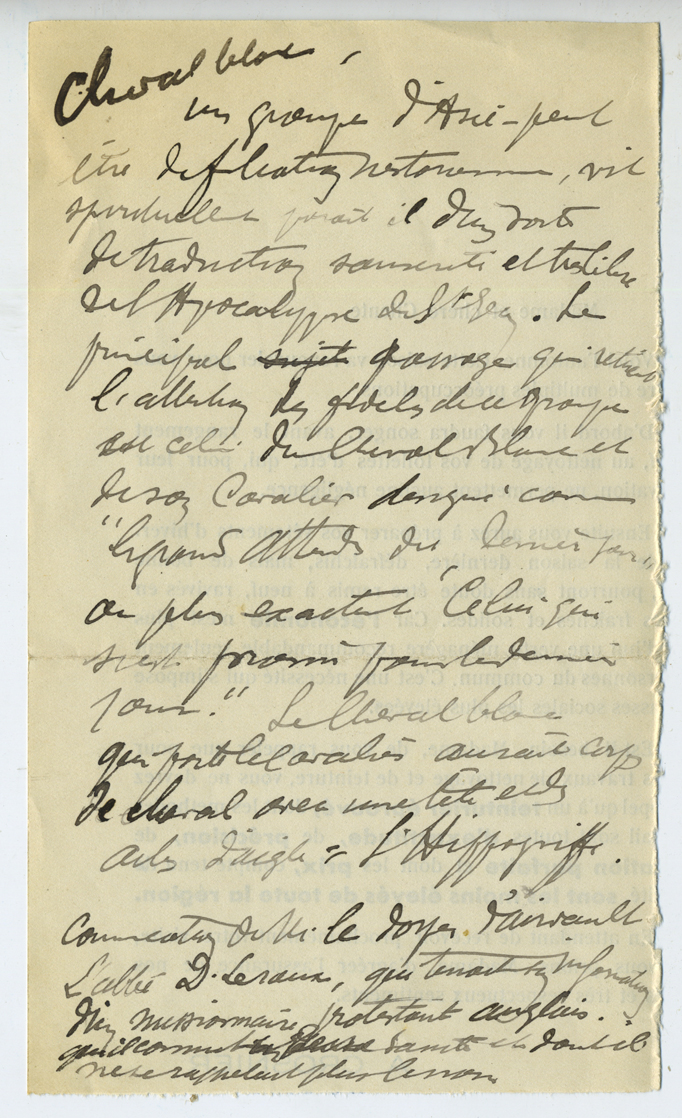 Cheval blanc,
un groupe d'Asie - peut
être de filiation nestorienne, vit
spirituellent parait il d'une sorte
de traduction sanscrite et très libre
de l'Apocalypse de St Jean. Le
principal sujet passage qui retient
l'attention des fidèles de ce groupe
est celui du Cheval Blanc et
de son Cavalier désigné comme
"le grand Attendu du dernier jour"
ou plus exactent "Celui qui
s'est promis pour le dernier
jour." Le cheval blanc
qui porte le cavalier aurait corps
de cheval avec une tête et des
ailes d'aigle = l'Hippogriffe.
Communication de M. le doyen d'airvault
L'abbé D. Leroux, qui tenait son information
d'un missionnaire protestant anglais.
qu'il connut et dont il
ne se rappelait plus le nom